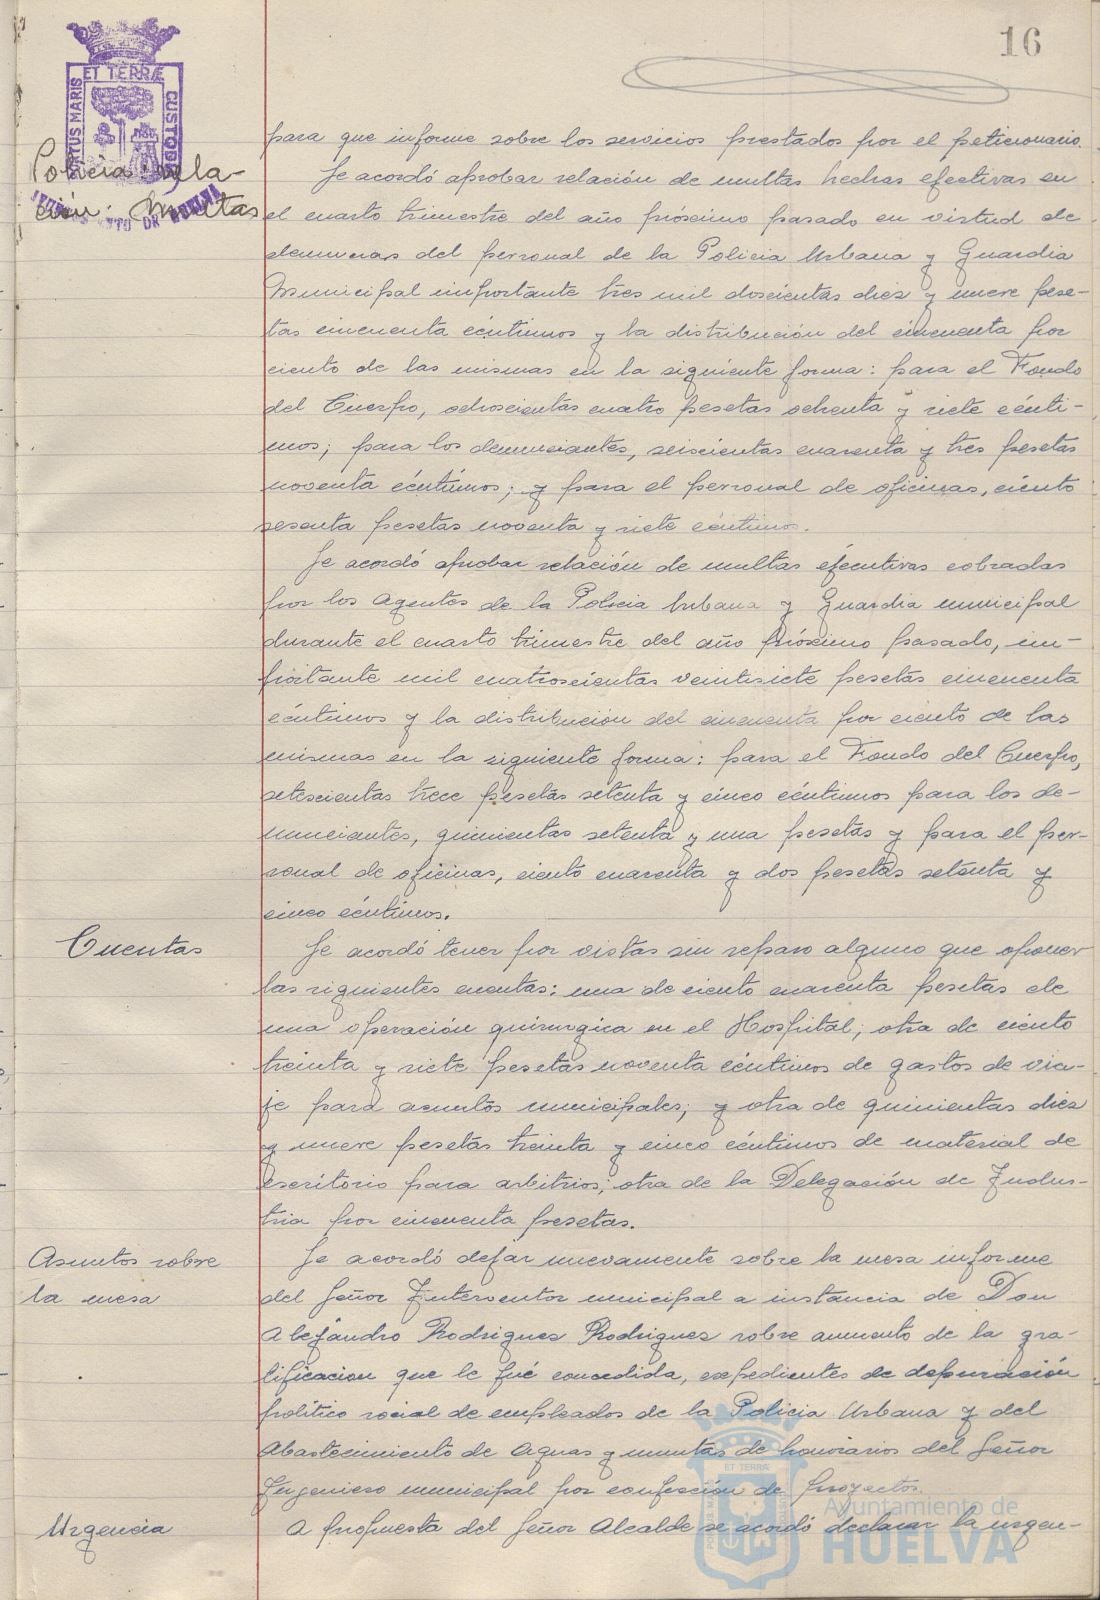 16
ET TERRÆ
PORTUS MARIS
CUSTODIA
AYUNTAMIENTO DE HUELVA
para que informe sobre los servicios prestados por el peticionario.
Policia: rela-
ción Multas
Se acordó aprobar relación de multas hechas efectivas en
el cuarto trimestre del año próximo pasado en virtud de
denuncias del personal de la Policia Urbana y Guardia
Municipal importante tres mil doscientas diez y nueve pese-
tas cincuenta céntimos y la distribución del cincuenta por
ciento de las mismas en la siguiente forma: para el Fondo
del Cuerpo, ochocientas cuatro pesetas ochenta y siete cénti-
mos; para los denunciantes, seiscientas cuarenta y tres pesetas
noventa céntimos; y para el personal de oficinas, ciento
sesenta pesetas noventa y siete céntimos.
Se acordó aprobar relación de multas ejecutivas cobradas
por los Agentes de la Policia Urbana y Guardia municipal
durante el cuarto trimestre del año próximo pasado, im-
portante mil cuatroscientas veintisiete pesetas cincuenta
céntimos y la distribución del cincuenta por ciento de las
mismas en la siguiente forma: para el Fondo del Cuerpo,
setescientas trece pesetas setenta y cinco céntimos para los de-
nunciantes, quinientas setenta y una pesetas y para el per-
sonal de oficinas, ciento cuarenta y dos pesetas setenta y
cinco céntimos.
Cuentas
Se acordó tener por vistas sin reparo alguno que oponer
las siguientes cuentas: una de ciento cuarenta pesetas de
una operación quirurgica en el Hospital; otra de ciento
treinta y siete pesetas noventa céntimos de gastos de via-
je para asuntos municipales; y otra de quinientas diez
y nueve pesetas treinta y cinco céntimos de material de
escritorio para arbitrios; otra de la Delegación de Indus-
tria por cincuenta pesetas.
Asuntos sobre
la mesa
Se acordó dejar nuevamente sobre la mesa informe
del Señor Interventor municipal a instancia de Don
Alejandro Rodrigues Rodrigues sobre aumento de la gra-
tificacion que le fué concedida, expedientes de depuración
politico social de empleados de la Policia Urbana y del
Abastecimiento de Aguas y minutas de honorarios del Señor
Ingeniero municipal por confección de proyectos.
Urgencia
A propuesta del Señor Alcalde se acordó declarar la urgen-
ET TERRA
Ayuntamiento de
HUELVA